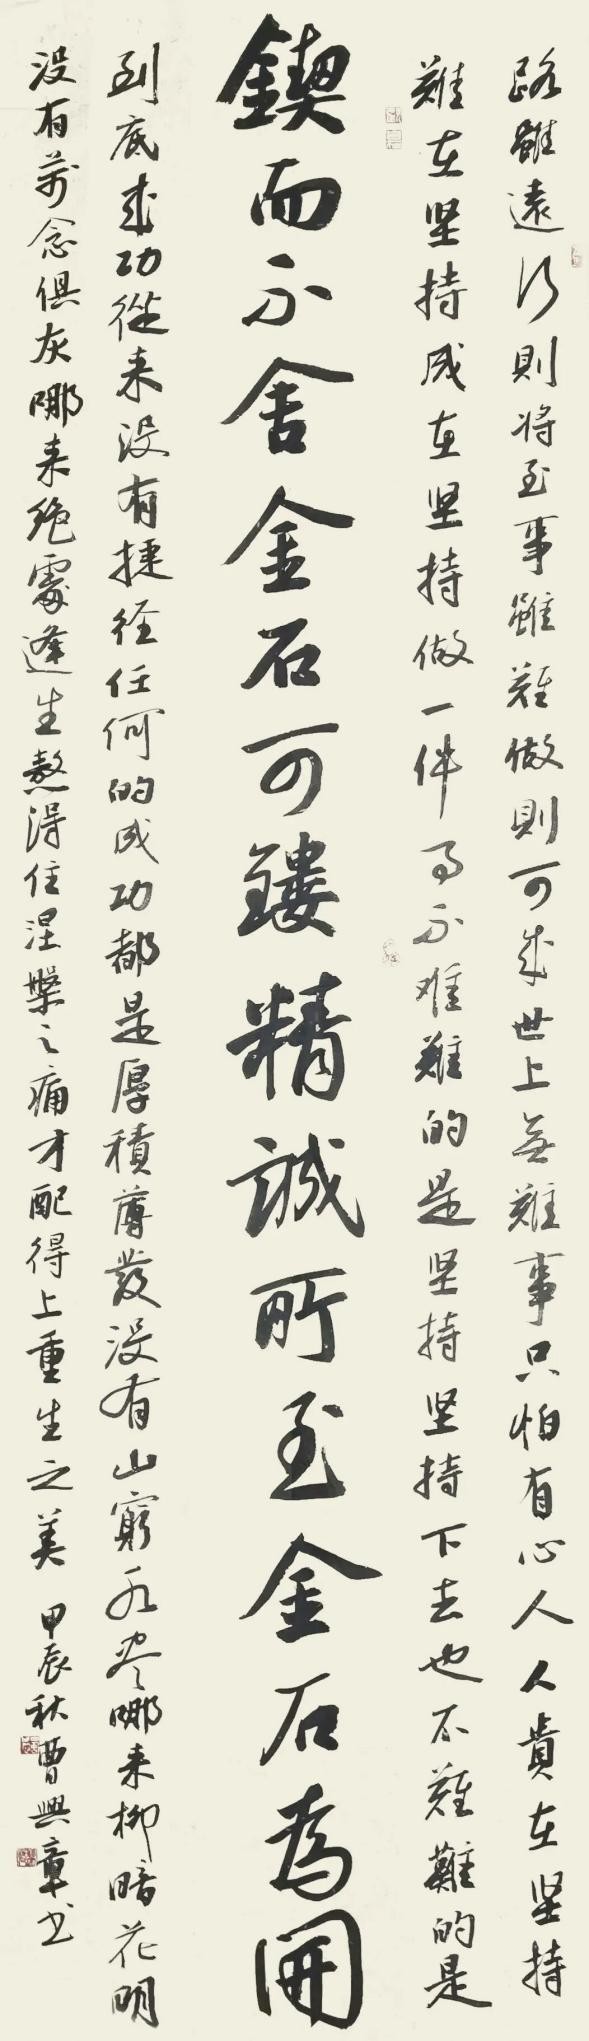 路雖遠行則將至事雖難做則可成世上無難事只怕有心人人貴在坚持
難在坚持成在坚持做一件事不难難的是坚持坚持下去也不難難的是
鍥而不舍金石可鏤精誠所至金石為開
到底成功從来没有捷径任何的成功都是厚積薄發没有山窮水尽哪来柳暗花明
没有万念俱灰哪来绝處逢生熬得住涅槃之痛才配得上重生之美
甲辰秋曹興章书